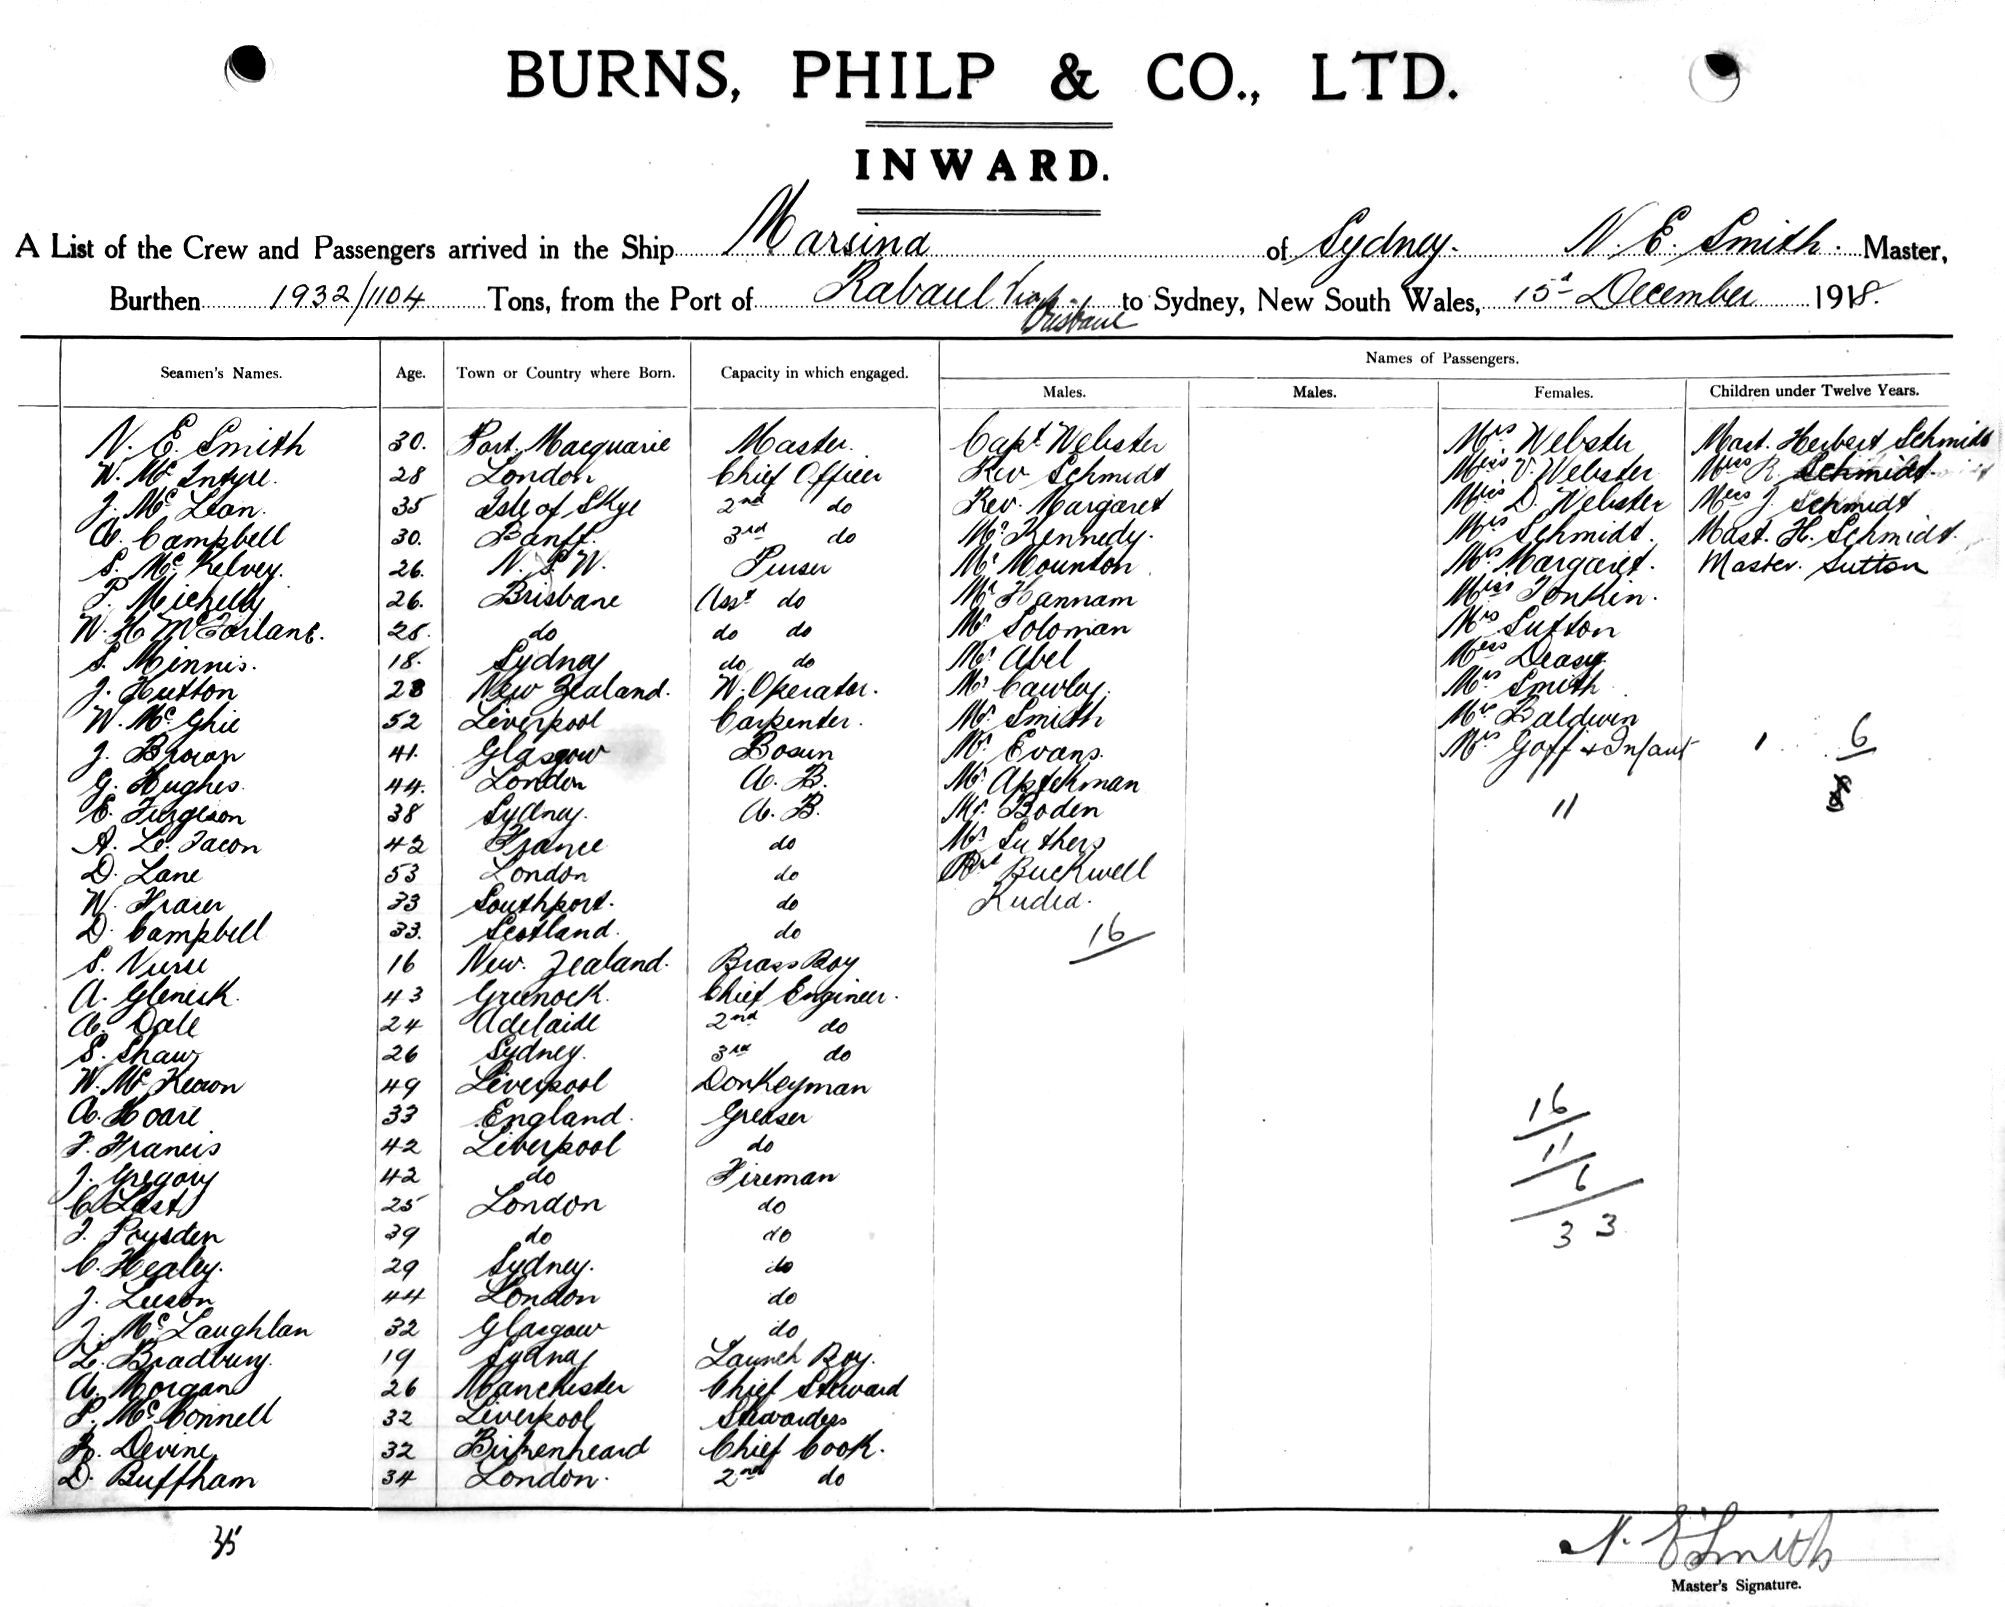 BURNS, PHILP & CO., LTD.
INWARD.
A List of the Crew and Passengers arrived in the Ship Marsina of Sydney. N. E. Smith. Master,
Burthen 1932/1104 Tons, from the Port of Rabaul via Brisbane to Sydney, New South Wales, 15th December 1918.
Seamen's Names. Age. Town or Country where Born. Capacity in which engaged. Names of Passengers.
Males. Males. Females. Children under Twelve Years.
N. E. Smith 30. Port. Macquarie Master. Capt Webster Mrs Webster Mast. Herbert Schmidt
W. Mc Intyre. 28 London Chief Officer Rev Schmidt Miss V. Webster Miss R. Schmidt.
J. Mc Lean. 35 Isle of Skye 2nd do Rev. Margaret Miss D. Webster Miss J Schmidt
A. Campbell 30. Banff. 3rd do Mr Kennedy. Mrs Schmidt. Mast. H. Schmidt.
S. Mc Kelvey. 26. N. S. W. Purser Mr Mounton Mrs Margaret. Master. Sutton
P. Michelly 26. Brisbane Asst do Mr Hannam Miss Tonkin.
W. H McFarlane. 25. do do do Mr Soloman Mrs Sutton
S. Minnis. 18. Sydney do do Mr Abel Miss Deasy
J. Hutton 28 New Zealand. W. Operator. Mr Cawley. Mrs Smith
W. Mc Ghie 52 Liverpool Carpenter. Mr Smith Mrs Baldwin
J. Brown 41. Glasgow Bosun Mr Evans. Mrs Goff & Infant 1 6
G. Hughes. 44. London A. B. Mr Apfekman
E. Ferguson 38 Sydney. A. B. Mr. Boden 11
A. Le. Facon 42 France do Mr Suthers
D. Lane 53 London do Buckwell
W. Fraser 33 Southport. do Kudea.
D. Campbell 33. Scotland. do 16
S. Nurse 16 New. Zealand. Brass Boy
A. Gleneck. 43 Greenock. Chief Engineer.
A. Dale 24 Adelaide 2nd do
S. Shaw 26 Sydney. 3rd do
W. Mc Keown 49 Liverpool Donkeyman
A. Hoare 33 England. Greaser 16
F. Francis 42 Liverpool do 11
J. Gregory 42 do Fireman 6
C. Last 25 London do
J. Poysden 39 do do 33
C. Healey. 29 Sydney. do
J. Leeson 44 London do
J. Mc Laughlan 32 Glasgow do
L. Bradbury. 19 Sydney Launch Boy.
A. Morgan 26 Manchester Chief Steward
P. Mc Connell 32 Liverpool Stewardess
R. Devine 32 Birkenheard Chief Cook.
D. Buffham 34 London. 2nd do
35
N. E Smith
Master's Signature.